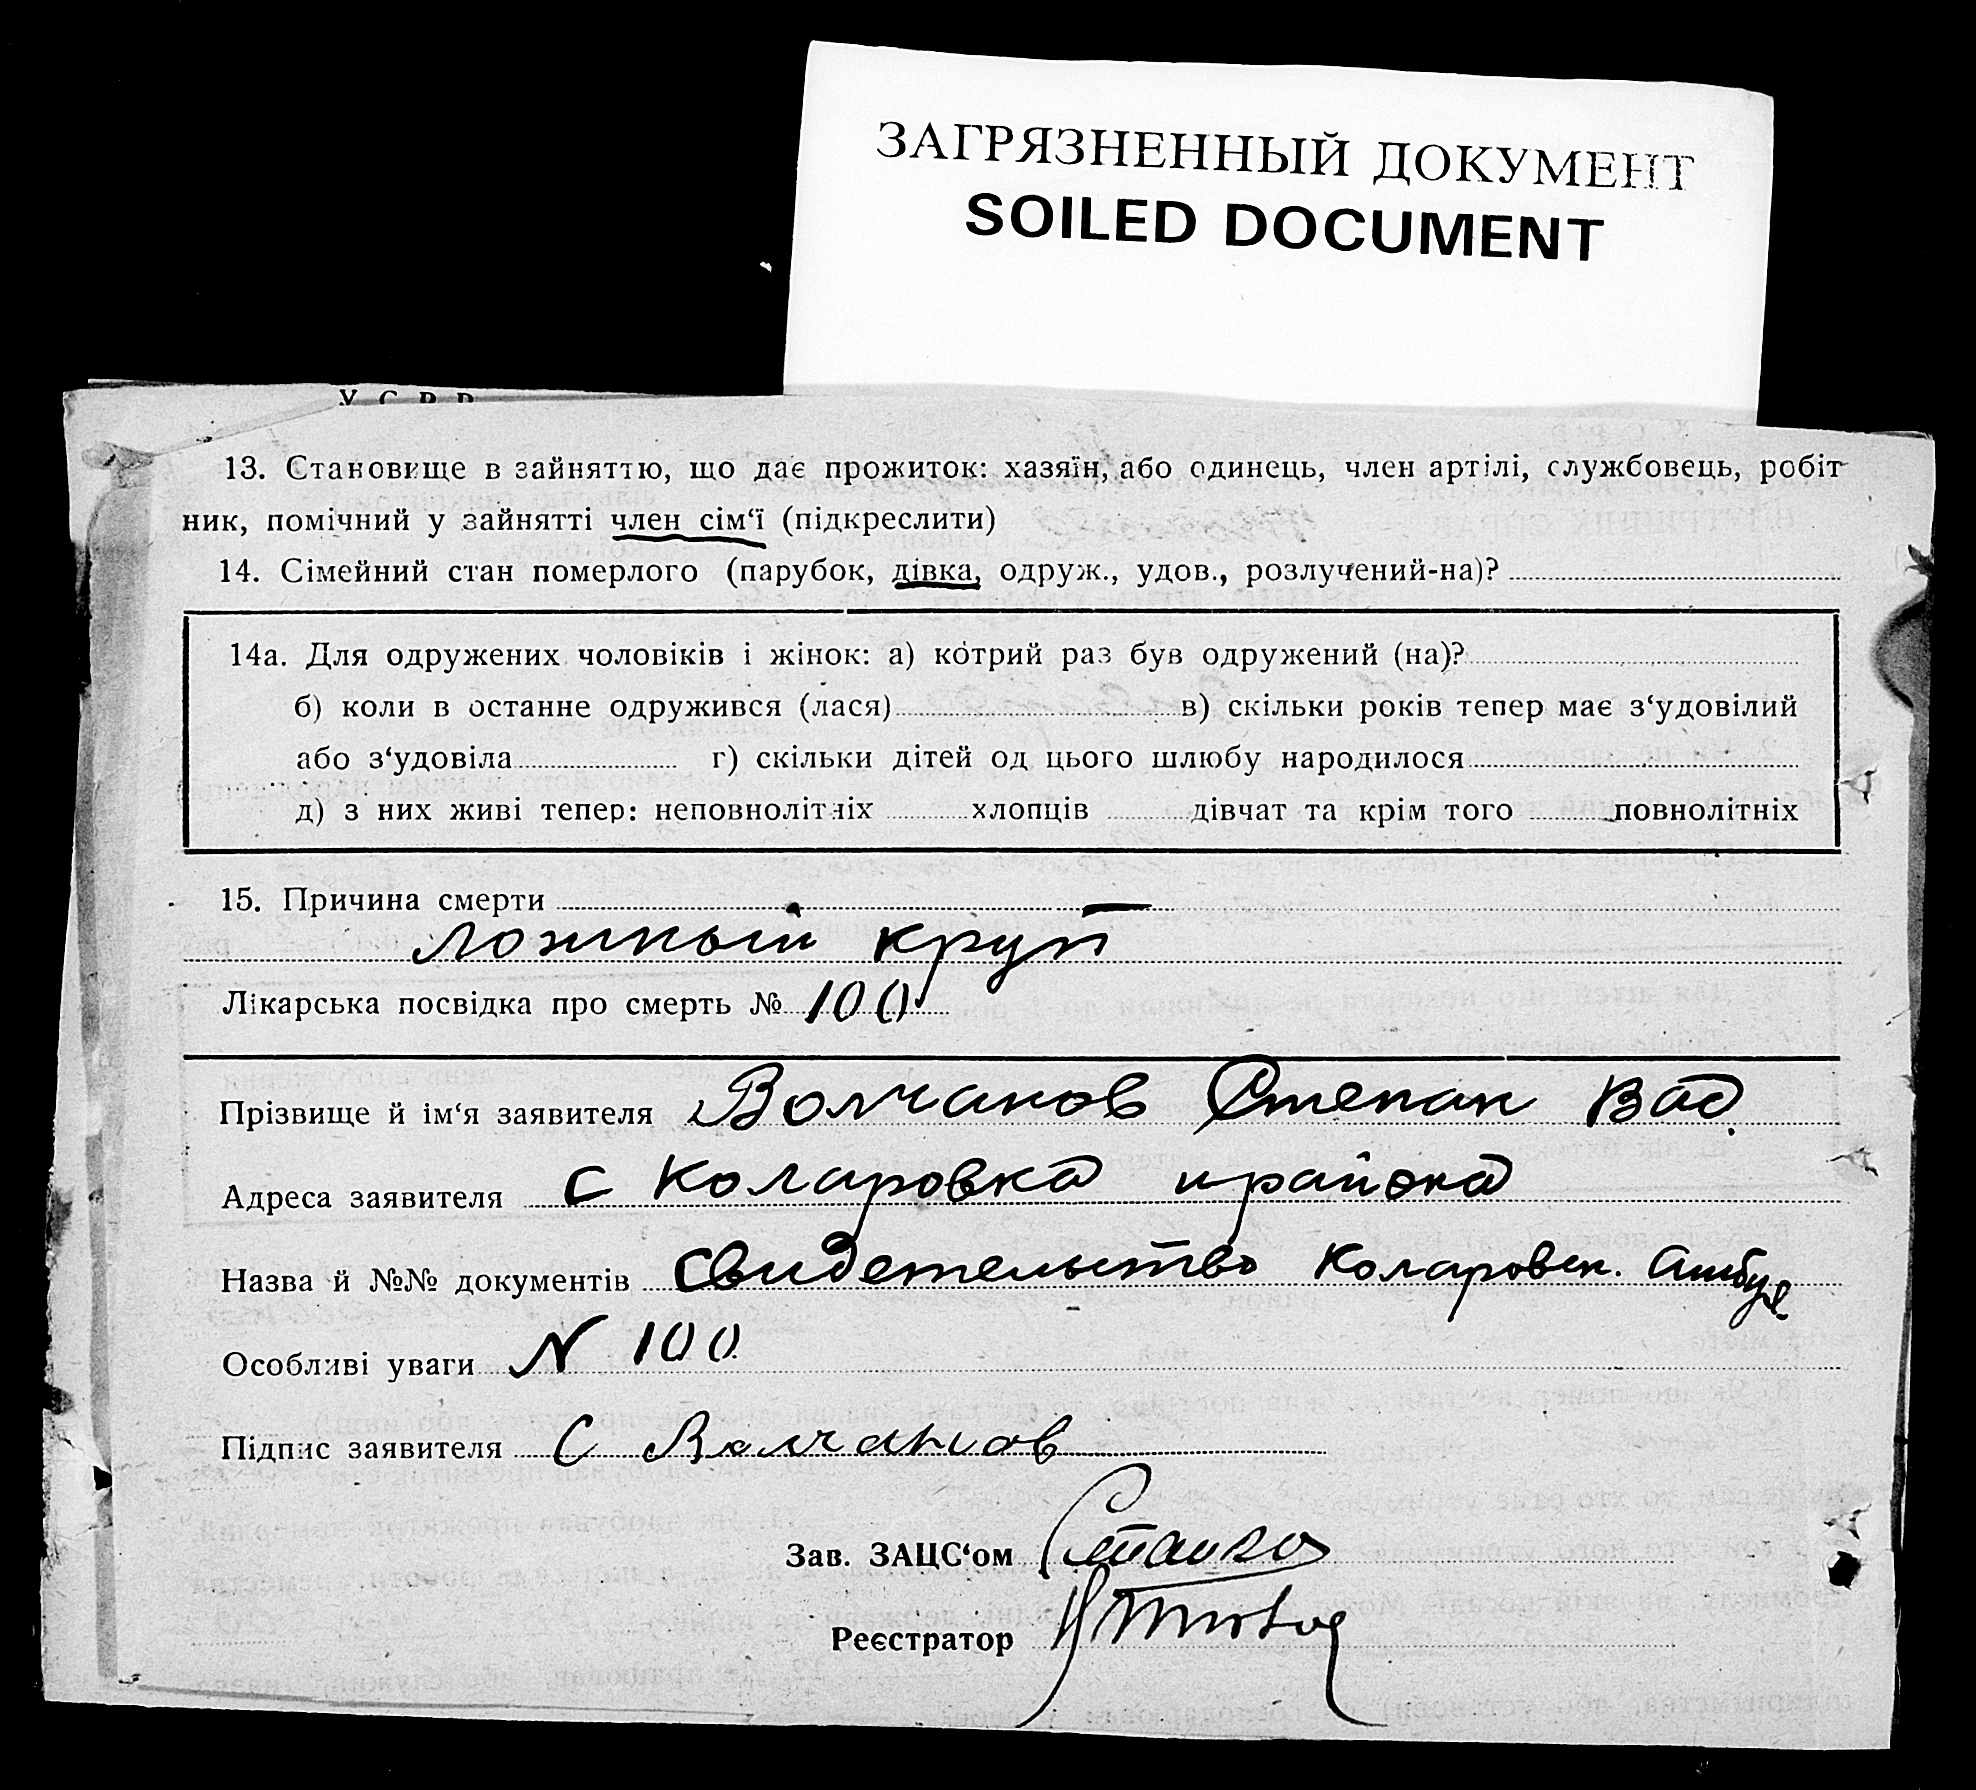 ЗАГРЯЗНЕННЫЙ ДОКУМЕНТ
SOILED DOCUMENT
У С Р Р
13. Становище в зайняттю, що дає прожиток: хазяїн, або одинець, член артілі, службовець, робіт-
ник, помічний у зайнятті член сім‘ї (підкреслити)
14. Сімейний стан померлого (парубок, дівка, одруж., удов., розлучений-на)?
14а. Для одружених чоловіків і жінок: а) котрий раз був одружений (на)?
б) коли в останне одружився (лася) в) скільки років тепер має з‘удовілий
або з‘удовіла г) скільки дітей од цього шлюбу народилося
д) з них живі тепер: неповнолітніх хлопців дівчат та крім того повнолітніх
15. Причина смерти
ложный круп
Лікарська посвідка про смерть № 100
Прізвище й ім‘я заявителя Волчанов Степан Вас.
Адреса заявителя с Коларовка района
Назва й №№ документів Свидетельство Коларовск.
Особливі уваги N 100
Підпис заявителя С Волчанов
Зав. ЗАЦС‘ом
Реєстратор